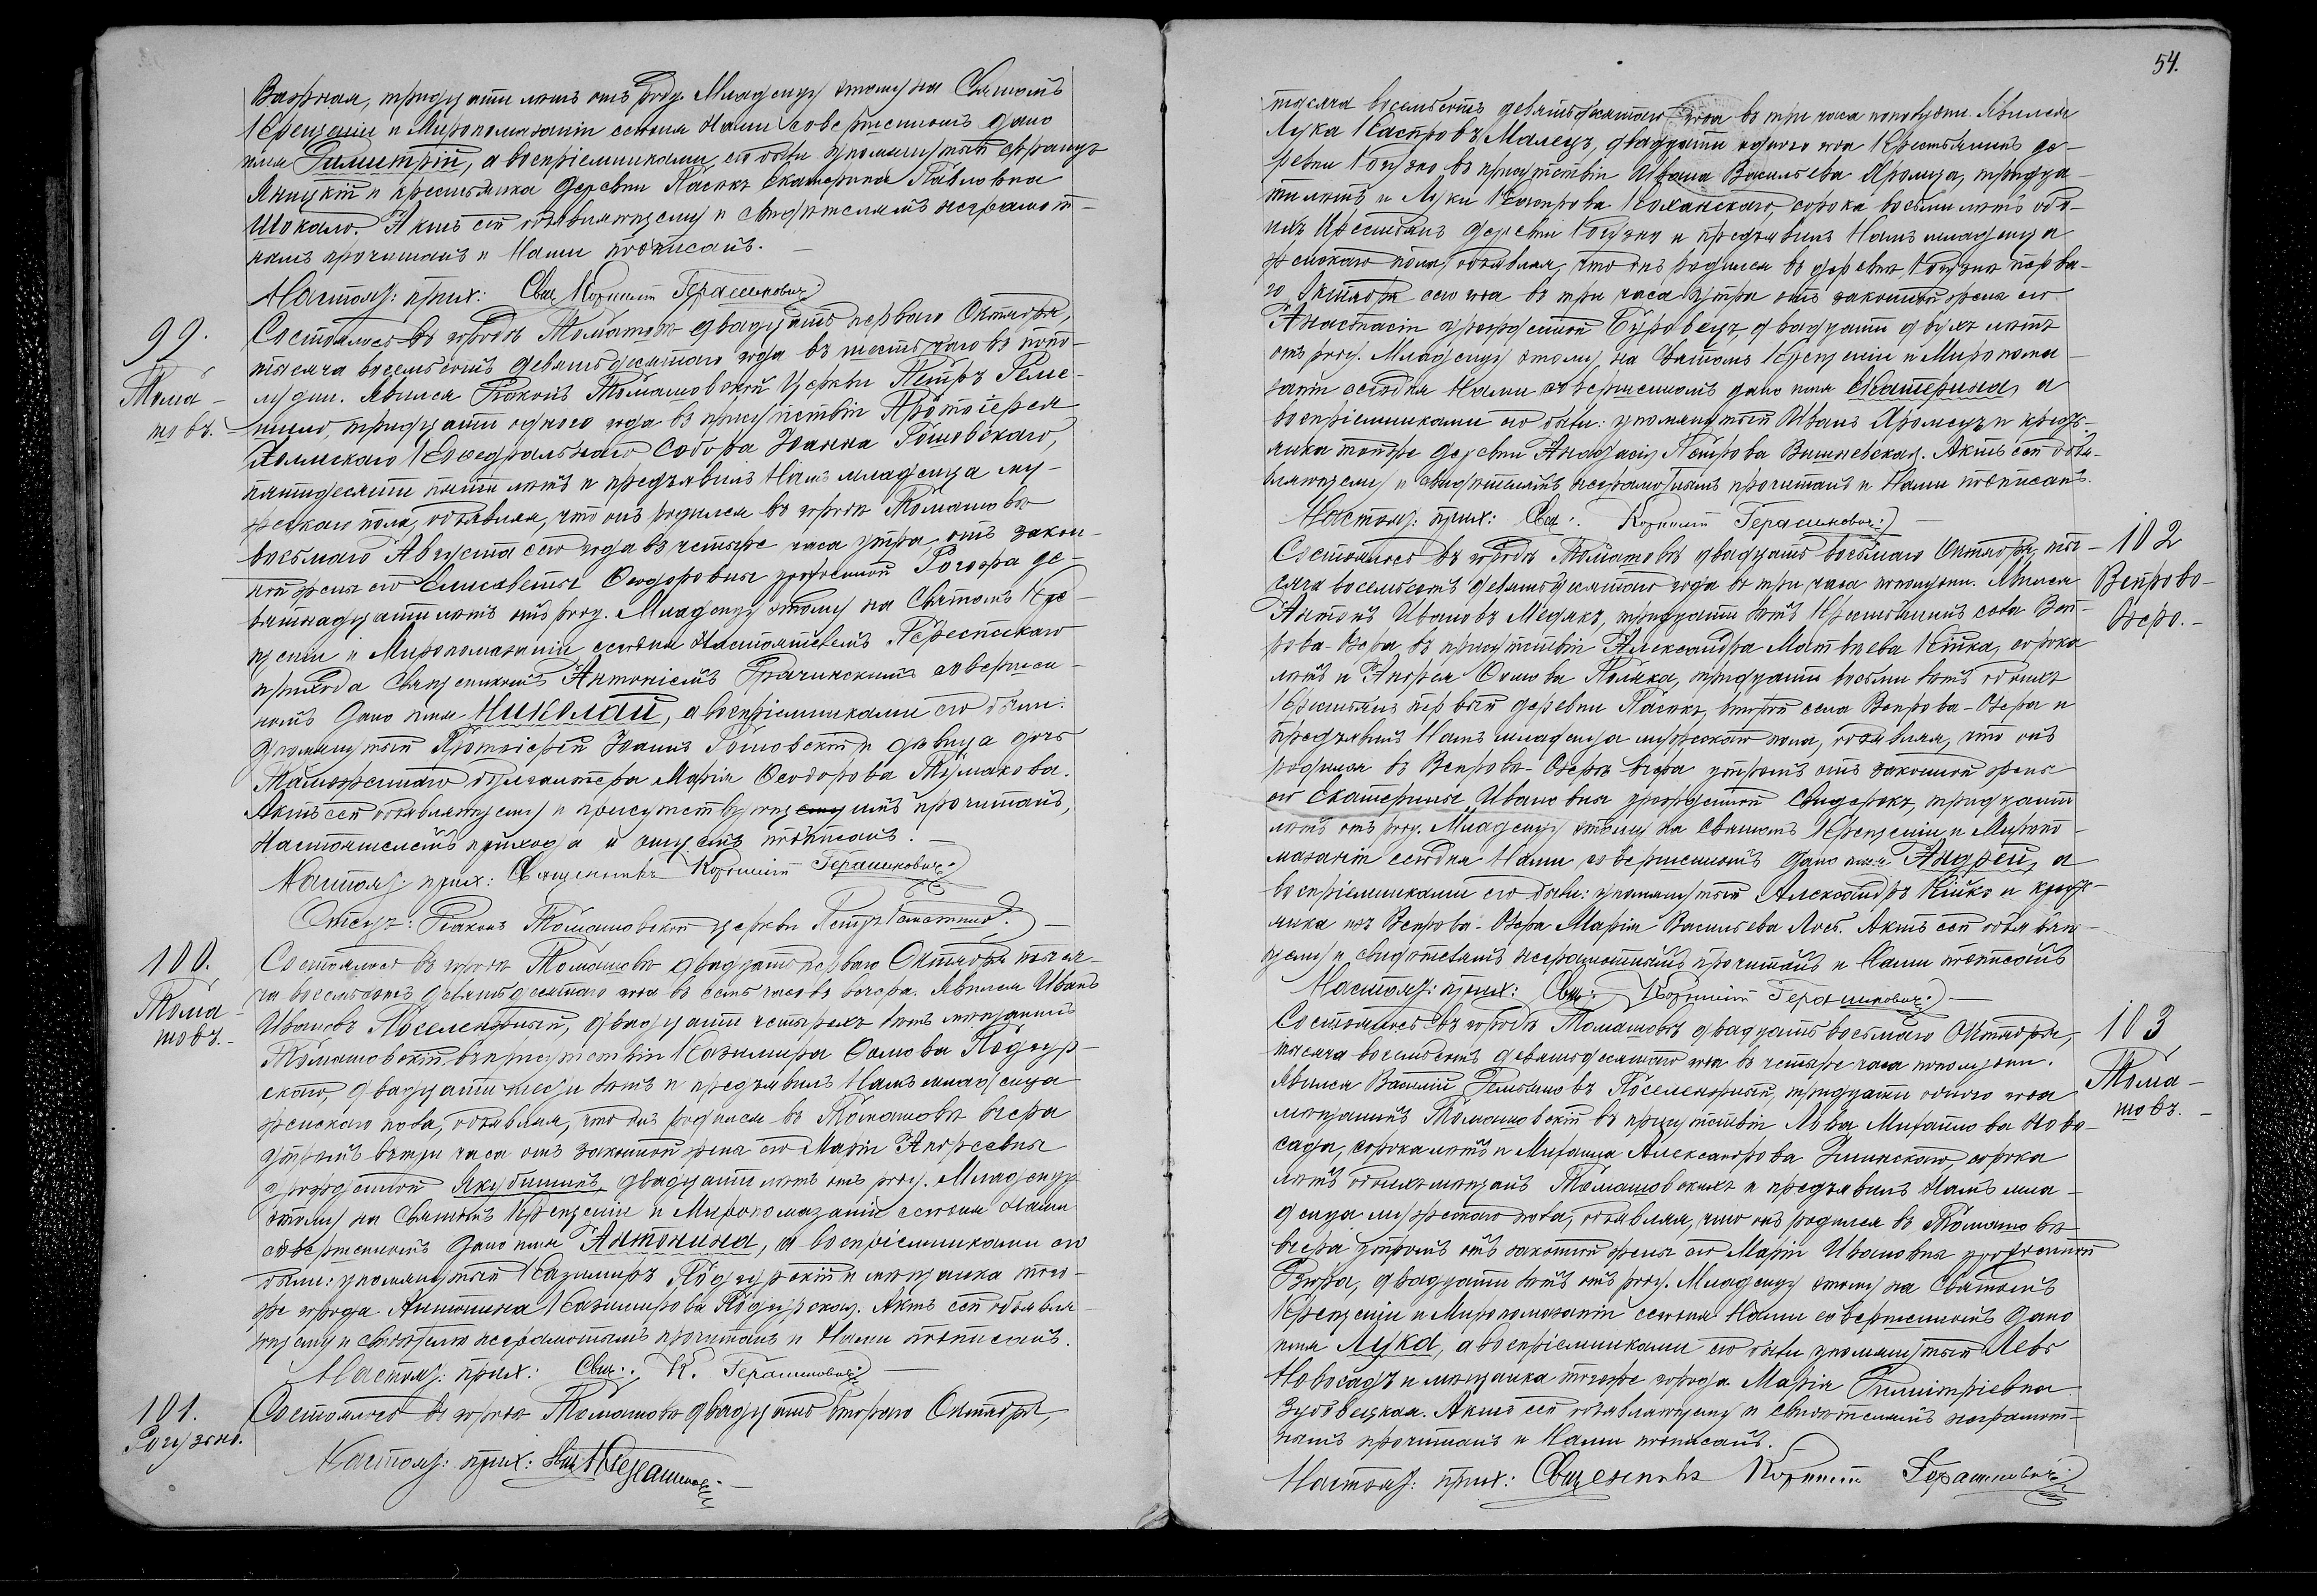 тридцати лѣтъ отъ роду. Младенцу этому на Святомъ
Крещеніи и Миропомазаніи сегодня Нами совершенномъ дано
имя Димитрій, а воспріемниками его были упомянутый Францъ
Яницкій и крестьянка деревни Пасекъ Екатерина Павловна
Шокало. Актъ сей объявляющему и свидѣтелямъ неграмот-
нымъ прочитанъ и Нами подписанъ.
Настоят: прих: Свящ Корнилій Герасимовичъ
99.
Тома-
шовъ.
Состоялось въ городѣ Томашовѣ двадцать перваго Октября,
тысяча восемьсотъ девяностаго года въ шесть часовъ попо-
лудни. Явился Діаконъ Томашовской Церкви Петръ
тридцати одного года въ присутствіи Протоіерея
Холмскаго Кафедральнаго Собора Іоанна Гошовскаго,
пятидесяти пяти лѣтъ и предъявилъ Намъ младенца му-
жескаго пола, объявляя, что онъ родился въ городѣ Томашовѣ
восьмаго Августа сего года въ четыре часа утра отъ закон-
ной жены его Елисаветы Ѳеодоровны урожденной де-
вятнадцати лѣтъ отъ роду. Младенцу этому на Святомъ Кре-
щеніи и Миропомазаніи сегодня Настоятелемъ
прихода Священникомъ Антоніемъ Грачинскимъ совершен-
номъ дано имя Николай, а воспріемниками его были:
упомянутый Протоіерей Іоаннъ Гошовскій и дѣвица дочь
Марія Ѳеодорова
Актъ сей объявляющему и присутствующимъ прочитанъ,
Настоятелемъ прихода и отцемъ подписанъ.
Настоят: прих: Священникъ Корнилій Герасимовичъ
Отецъ: Діаконъ Томашовской церкви Петръ
100.
Тома-
шовъ.
Состоялось въ городѣ Томашовѣ двадцать перваго Октября тыся-
ча восемьсотъ девяностаго года въ семь часовъ вечера. Явился Иванъ
Ивановъ Поселенжный, двадцати четырехъ лѣтъ мѣщанинъ
Томашовскій въ присутствіи Казимира Подгур-
скаго, двадцати лѣтъ и предъявилъ Намъ младенца
женскаго пола, объявляя, что онъ родился въ Томашовѣ вчера
утромъ въ три часа отъ законной жены его Маріи Андреевны
урожденной Якубишинъ, двадцати лѣтъ отъ роду. Младенцу
этому на Святомъ Крещеніи и Миропомазаніи сегодня Нами
совершенномъ дано имя Антонина, а воспріемниками его
были: упомянутый Казимиръ Подгурскій и мѣщанка того-
же города Антонина Казимирова Подгурская. Актъ сей объявля-
ющему и свидѣтелю неграмотнымъ прочитанъ и Нами подписанъ.
Настоят: прих: Свящ: К. Герасимовичъ
101.
Рогузно.
Состоялось въ городѣ Томашовѣ двадцать втораго Октября,
Настоят: прих: Свящ К Герасимовичъ
54.
тысяча восемьсотъ девяностаго года въ три часа пополудни. Явился
Лука Малецъ, двадцати одного года Крестьянинъ де-
ревни Рогузно въ присутствіи Ивана Васильева Яромца, тридца-
ти лѣтъ и Луки Коханскаго, сорока восьми лѣтъ обо-
ихъ Крестьянъ деревни Рогузна и предъявилъ Намъ младенца
женскаго пола, объявляя, что онъ родился въ деревнѣ Рогузнѣ перва-
го Октября сего года въ три часа утра отъ законной жены его
Анастасіи урожденной Буровецъ, двадцати двухъ лѣтъ
отъ роду. Младенцу этому на Святомъ Крещеніи и Миропома-
заніи сегодня Нами совершенномъ дано имя Екатерина, а
воспріемниками его были: упомянутый Иванъ Яромецъ и кресть-
янка той же деревни Анастасія Петрова Вишневская. Актъ сей объя-
вляющему и свидѣтелямъ неграмотнымъ прочитанъ и Нами подписанъ.
Настоят: прих: Свящ: Корнилій Герасимовичъ
102
Вепрово-
Озеро.
Состоялось въ городѣ Томашовѣ двадцать восьмаго Октября, ты-
сяча восемьсотъ девяностаго года въ три часа пополудни. Явился
Антонъ Ивановъ Медякъ, тридцати лѣтъ Крестьянинъ села Веп-
рова-Озера въ присутствіи Александра Матвѣева Кійка, сорока
лѣтъ и Андрея Поляка, тридцати восьми лѣтъ обоихъ
Крестьянъ первый деревни Пасекъ, второй села Вепрова-Озера и
предъявилъ Намъ младенца мужескаго пола, объявляя, что онъ
родился въ Вепрова-Озерѣ вчера утромъ отъ законной жены
его Екатерины Ивановны урожденной Свидерекъ, тридцати
лѣтъ отъ роду. Младенцу этому на Святомъ Крещеніи и Миропо-
мазаніи сегодня Нами совершенномъ дано имя Андрей, а
воспріемниками его были: упомянутый Александръ Кійко и кресть-
янка изъ Вепрова-Озера Марія Васильева Лось. Актъ сей объявляю-
щему и свидѣтелямъ неграмотнымъ прочитанъ и Нами подписанъ
Настоят: прих: Свящ: Корнилій Герасимовичъ
103
Тома-
шовъ.
Состоялось въ городѣ Томашовѣ двадцать восьмаго Октября,
тысяча восемьсотъ девяностаго года въ четыре часа пополудни.
Явился Василій Поселенжный, тридцати одного года
мѣщанинъ Томашовскій въ присутствіи Льва Михайлова Ново-
сада, сорока лѣтъ и Михаила Александрова сорока
лѣтъ обоихъ мѣщанъ Томашовскихъ и предъявилъ Намъ мла-
денца мужескаго пола, объявляя, что онъ родился въ Томашовѣ
вчера утромъ отъ законной жены его Маріи Ивановны урожденной
двадцати лѣтъ отъ роду. Младенцу этому на Святомъ
Крещеніи и Миропомазаніи сегодня Нами совершенномъ дано
имя Лука, а воспріемниками его были упомянутый Левъ
Новосадъ и мѣщанка тогоже города Марія Димитріевна
Актъ сей объявляющему и свидѣтелямъ неграмот-
нымъ прочитанъ и Нами подписанъ.
Настоят: прих: Священникъ Корнилій Герасимовичъ